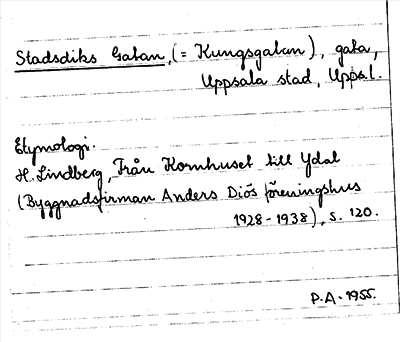 Stadsdiks Gatan, (= Kungsgatan), gata,
Uppsala stad, Upps.l.
Etymologi.
H. Lindberg, Från Kornhuset till Ydal
(Byggnadsfirman Anders Diös föreningshus
1928-1938), s. 120.
P.A. 1955.